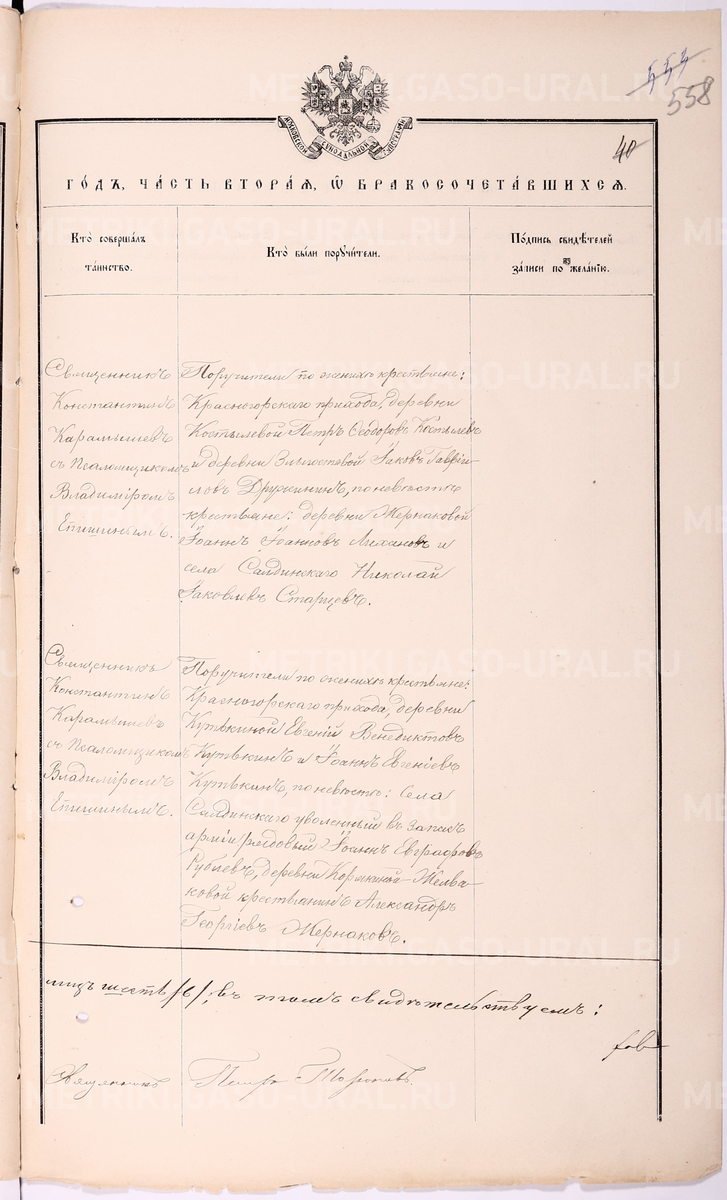 555
558
МОСКОВСКОЙ СѴНОДАЛЬНОЙ ТИПОГРАФІИ
40
ГОДЪ, ЧАСТЬ ВТОРАЯ, Ѡ БРАКОСОЧЕТАВШИХСЯ.
Кто совершалъ таинство.
Кто были поручители.
Подпись свидѣтелей записи по желанію.
Священникъ
Константинъ
Карамышевъ
съ Псаломщикомъ
Владиміромъ
Епишинымъ.
Поручители по женихѣ крестьяне:
Красногорскаго прихода, деревни
Костылевой Петръ Ѳеодоровъ Костылевъ
и деревни Злыгостевой Іаковъ Гаврі-
ловъ Дружининъ, по невѣстѣ
крестьяне: деревни Жернаковой
Іоаннъ Іоанновъ Лихановъ и
села Салдинскаго Николай
Іаковлевъ Старцевъ.
Священникъ
Константинъ
Карамышевъ
съ Псаломщикомъ
Владиміромъ
Епишинымъ.
Поручители по женихѣ крестьяне:
Красногорскаго прихода, деревни
Кутькиной Евгеній Венедиктовъ
Кутькинъ и Іоаннъ Евгеніевъ
Кутькинъ, по невѣстѣ: села
Салдинскаго уволенный въ запасъ
арміи рядовой Іоаннъ Евграфовъ
Рублевъ, деревни Корякиной-Желва-
ковой крестьянинъ Александръ
Георгіевъ Жернаковъ.
лицъ шесть /6/, въ томъ свидѣтельствуемъ:
Священникъ Петръ
METRIKI.GASO-URAL.RU